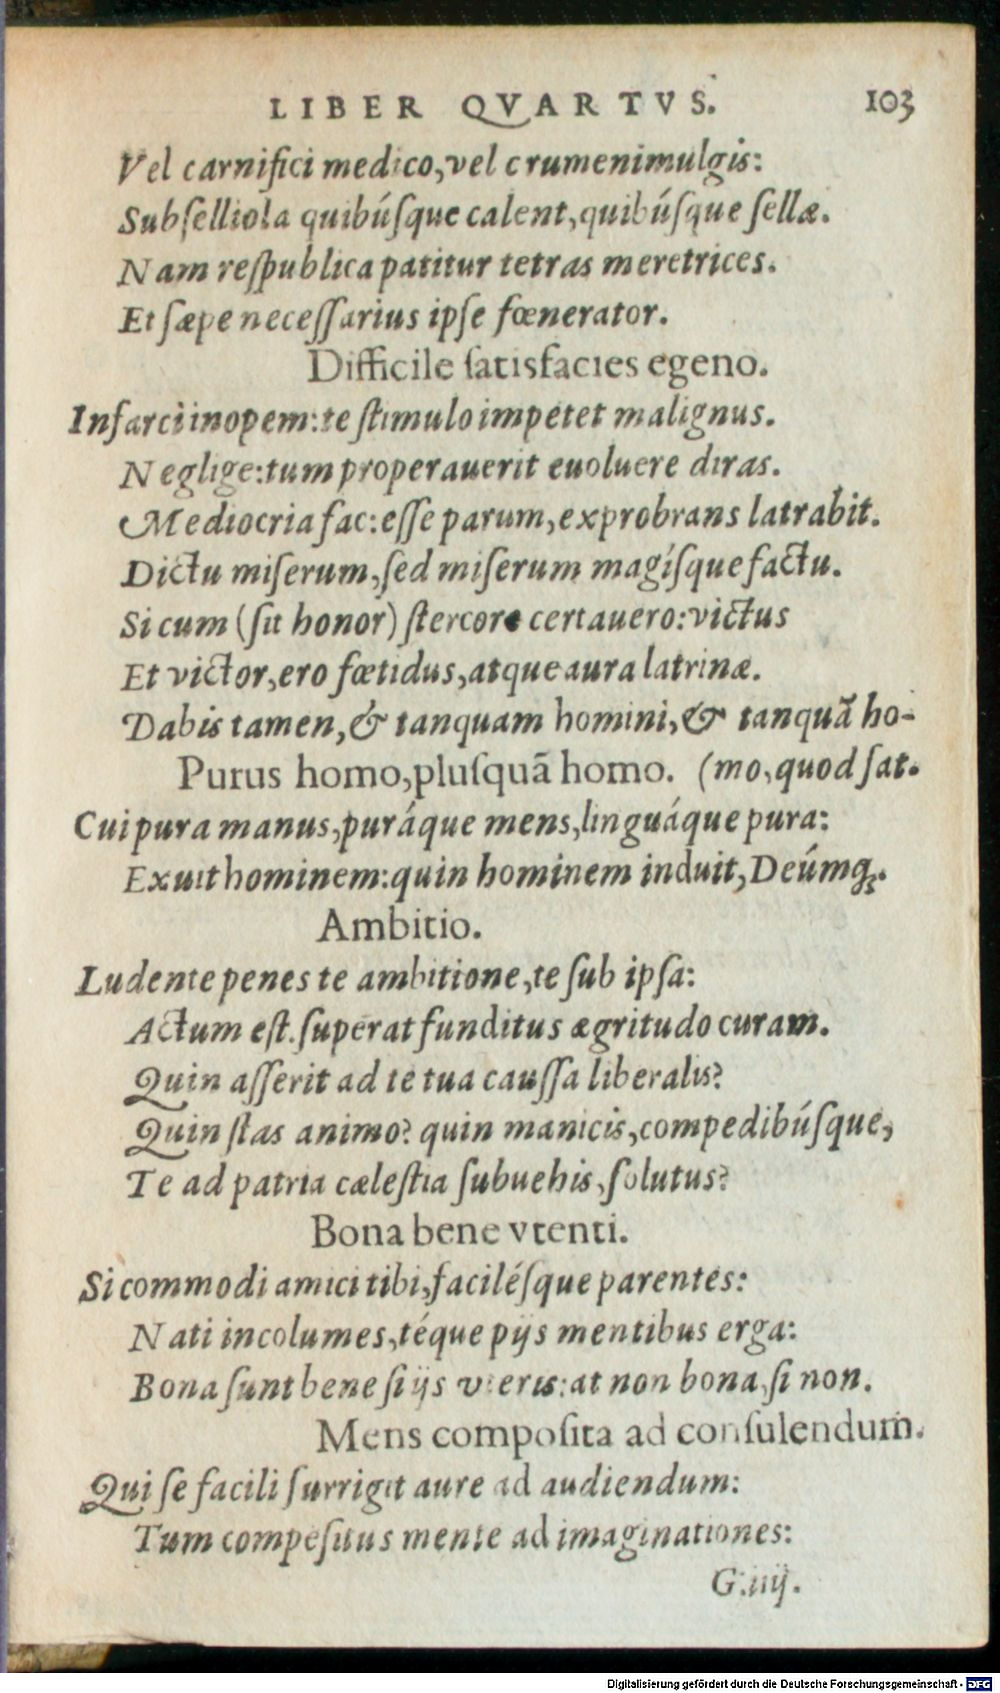 LIBER QVARTVS. 103
Vel carnifici medico, vel crumenimulgis:
Subſelliola quibúſque calent, quibúſque ſellæ.
Nam reſpublica patitur tetras meretrices.
Et ſæpe neceſſarius ipſe fœnerator.
Difficile ſatisfacies egeno.
Infarci inopem: te ſtimulo impetet malignus.
Neglige: tum properauerit euoluere diras.
Mediocria fac: eſſe parum, exprobrans latrabit.
Dictu miſerum, ſed miſerum magíſque factu.
Si cum (ſit honor) ſtercore certauero: victus
Et victor, ero fœtidus, atque aura latrinæ.
Dabis tamen, & tanquam homini, & tanquã ho-
Purus homo, pluſquã homo. (mo, quod ſat.
Cui pura manus, puráque mens, linguáque pura:
Exuit hominem: quin hominem induit, Deúmq;.
Ambitio.
Ludente penes te ambitione, te ſub ipſa:
Actum eſt. ſuperat funditus ægritudo curam.
Quin aſſerit ad te tua cauſſa liberalis?
Quin ſtas animo? quin manicis, compedibúſque,
Te ad patria cæleſtia ſubuehis, ſolutus?
Bona bene vtenti.
Si commodi amici tibi, faciléſque parentes:
Nati incolumes, téque pijs mentibus erga:
Bona ſunt bene ſi ijs vteris: at non bona, ſi non.
Mens compoſita ad conſulendum.
Qui ſe facili ſurrigit aure ad audiendum:
Tum compeſitus mente ad imaginationes:
G.iiij.
Digitalisierung gefördert durch die Deutsche Forschungsgemeinschaft - DFG